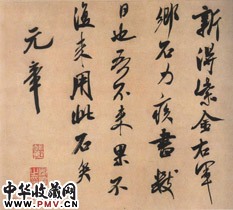 新得紫金右軍
鄉石力疾書數
日也吾不來果不
復來用此石矣
元章
中华收藏网
WWW.PMV.CN